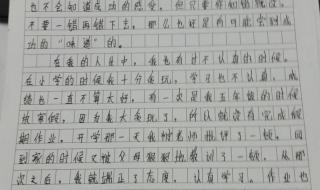 也不会知道成功的感受，但只要你知错就改，
不要一错再错下去，那么也好是有可能会到成
功的"味道"的。
在我的人生中，我也有过不认真的时候。
在小学的时候我十分贪玩，学习也不认真，成
绩也一直不算太好，有一次是我五年级的时候
放寒假，因为我太贪玩了，所以就没有完成假
期作业，开学那一天我被老师批评了一顿，回
到家的时候又被父母狠狠地教训了一顿，从那
次之后，我就端正了态度，认真学习，作业也